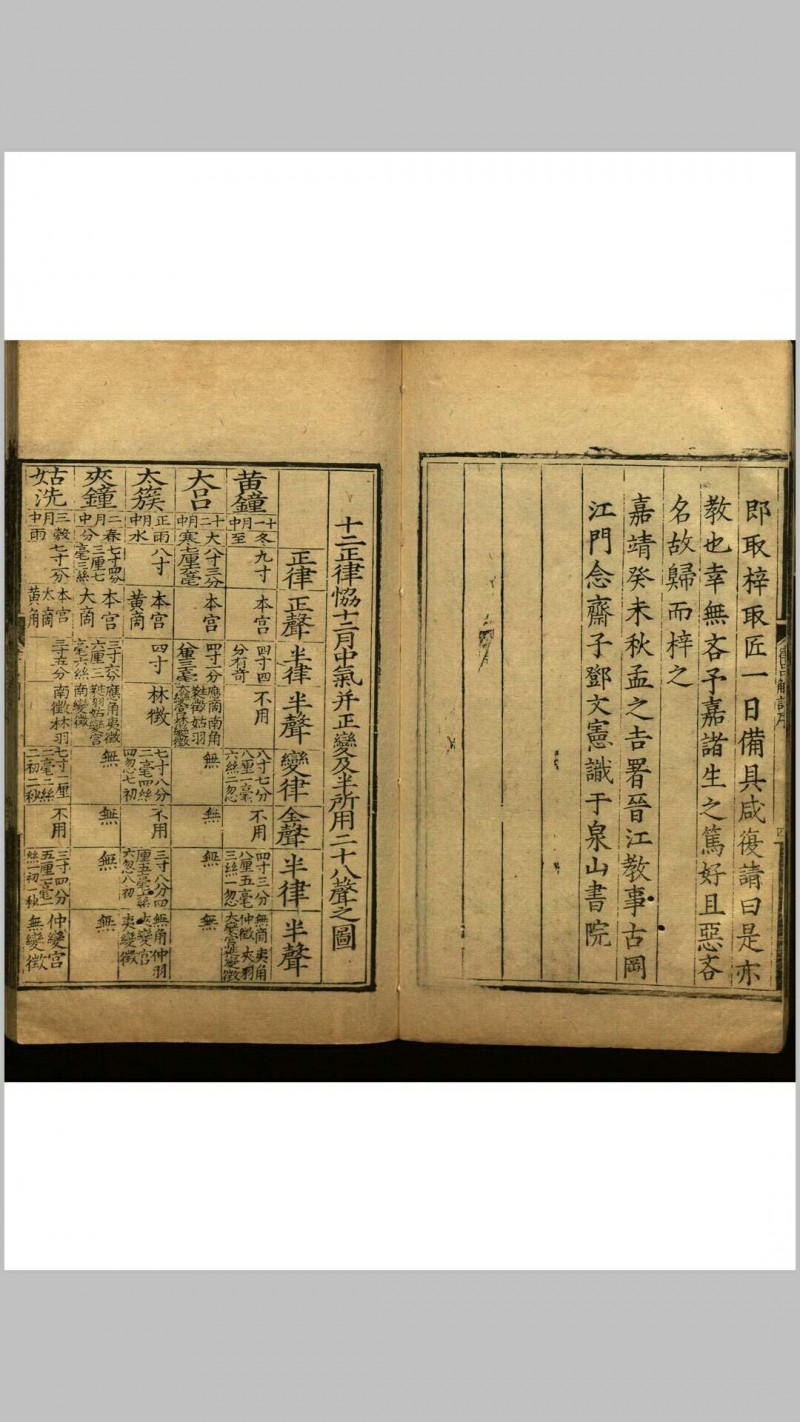 即取梓取匠一日備具咸復請曰是亦
教也幸無吝予嘉諸生之篤好且惡吝
名故歸而梓之
嘉靖癸未秋孟之吉署晉江教事古岡
江門念齋子鄧文憲識于泉山書院
十二正律恊十二月中氣并正變及半所用二十八聲之圖
正律 正聲 半律 半聲 變律 全聲 半律 半聲
黃鐘
十一月中
冬至
九寸
本宮
四寸四
分有奇
不用
八寸七分
八厘一毫
六絲二忽
不用
四寸三分
八厘五毫
三絲一忽
無商夷角
仲徵夾羽
大呂
十二月中
大寒
八寸三分
七厘六毫
本宮
四寸一分
八厘三毫
應商南角
蕤徵姑羽
無
無
無
無
太簇
正月中
雨水
八寸
本宮
黃商
四寸
林徵
七寸八分
二毫四絲
四忽七初
不用
三寸八分四
厘五毫六絲
六忽八初
無角仲羽
夾變宮
夷變徵
夾鐘
二月中
春分
七寸四分
三厘七
毫三絲
本宮
大商
三寸六分
六厘三
毫六絲
應角夷徵
蕤羽姑變宮
南變徵
無
無
無
無
姑洗
三月中
穀雨
七寸一分
本宮
太商
黃角
三寸五分
南徵林羽
七寸一厘
二毫二絲
二初二秒
不用
三寸四分
五厘一毫
絲一初一秒
仲變宮
無變徵